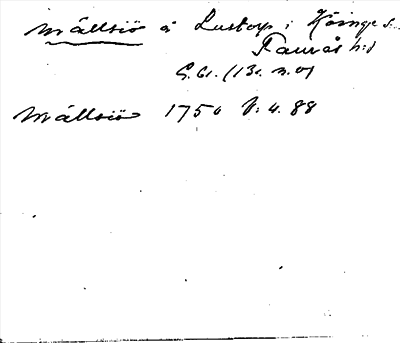 Mållsiö å Lustorp i Köinge s.
Faurås hd
G. Gr. (13 n. o)
Mållsiö 1750 V: 4. 88